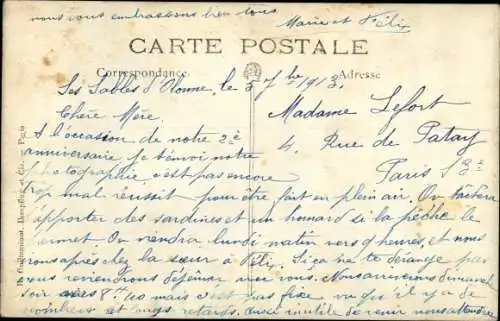 nous vous embrassons bien tous
Marie et Félix
CARTE POSTALE
Correspondance
Adresse
Les Sables d'Olonne, le 5 7bre 1913.
Chère Mère.
A l'occasion de notre 2e
anniversaire, je t'envoi notre
photographie, c'est pas encore
trop mal réussit pour être fait en plein air. On tâchera
d'apporter des sardines et un homard si la pêche le
permet. On viendra lundi matin vers 9 heures, et nous
irons après chez la sœur à Félix. Si ça ne te dérange pas
nous reviendrons déjeuner avec vous. Nous arriverons dimanche
soir vers 8h 40 mais c'est pas fixe vu qu'il y a de
nombreux et longs retards. Aussi inutile de venir nous attendre
Madame Lefort
4, Rue de Patay
Paris